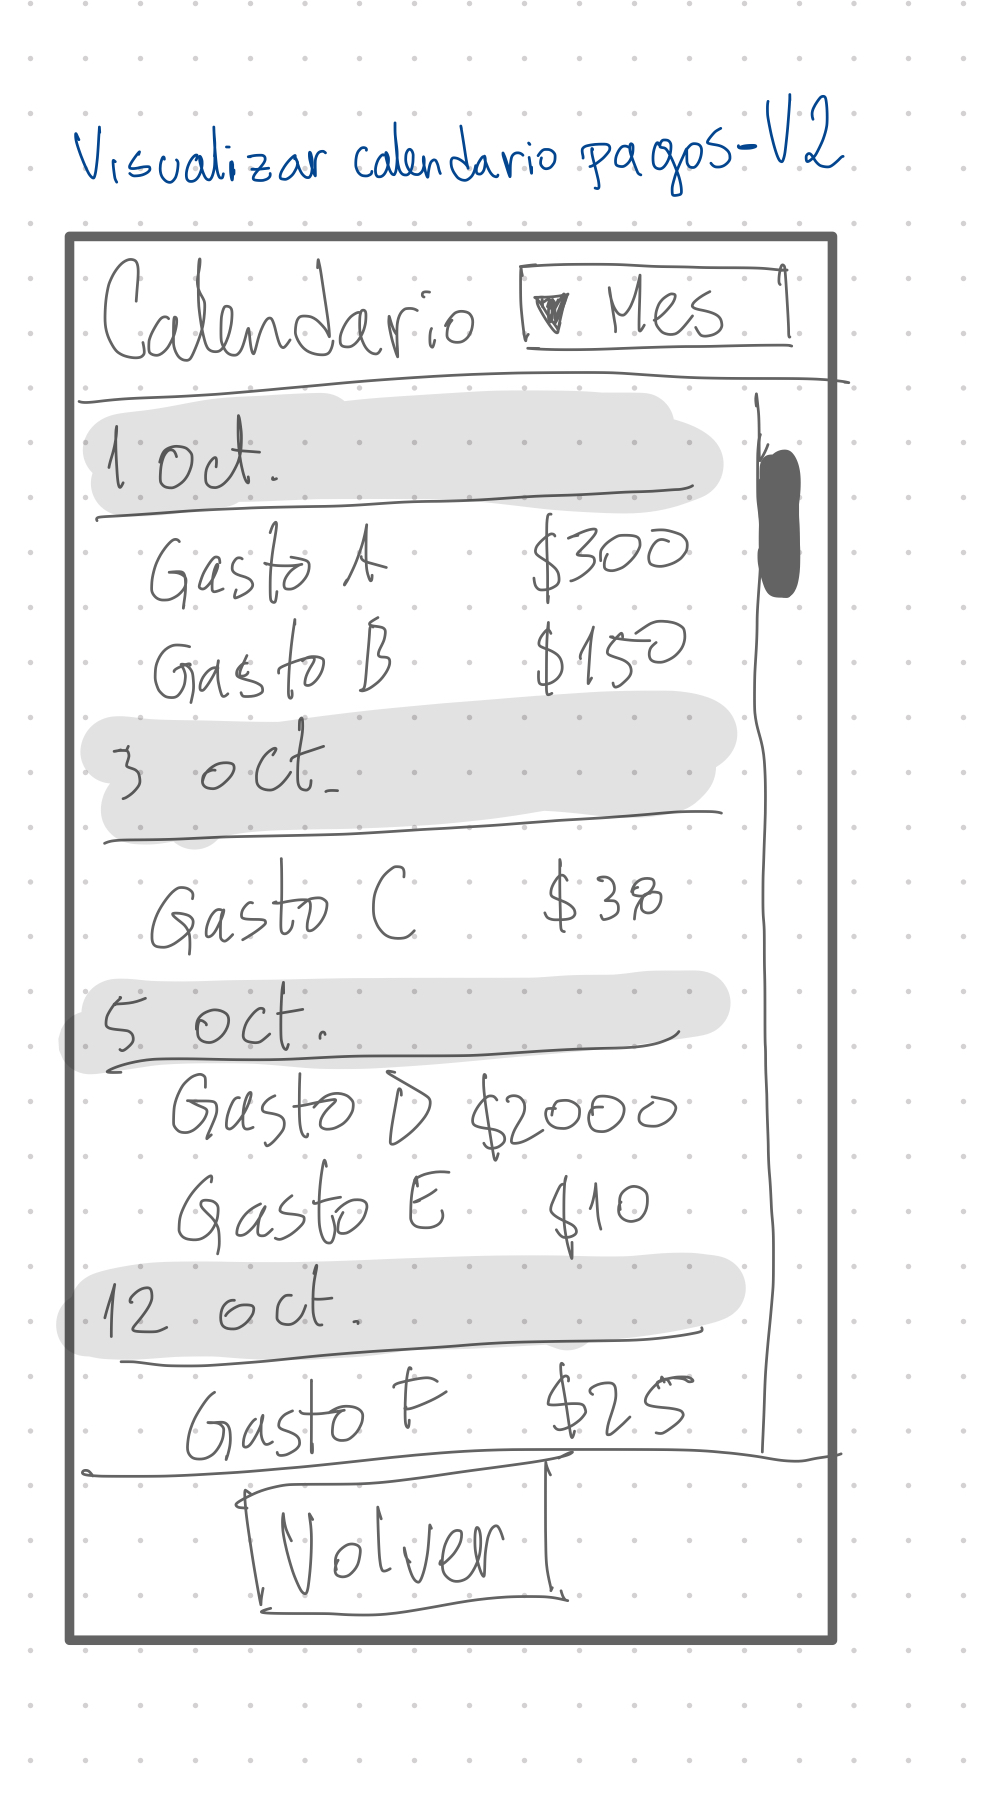 Visualizar calendario pagos-V2
Calendario ▼ Mes
1 oct.
Gasto A $300
Gasto B $150
3 oct.
Gasto C $38
5 oct.
Gasto D $2000
Gasto E $10
12 oct.
Gasto F $25
Volver